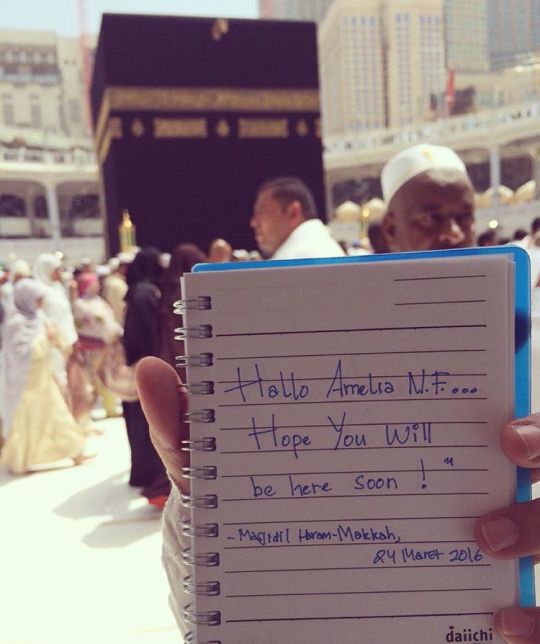 Hallo Amelia N.F....
Hope You Will
be here soon ! "
- Masjidil Haram-Makkah,
24 Maret 2016
daiichi